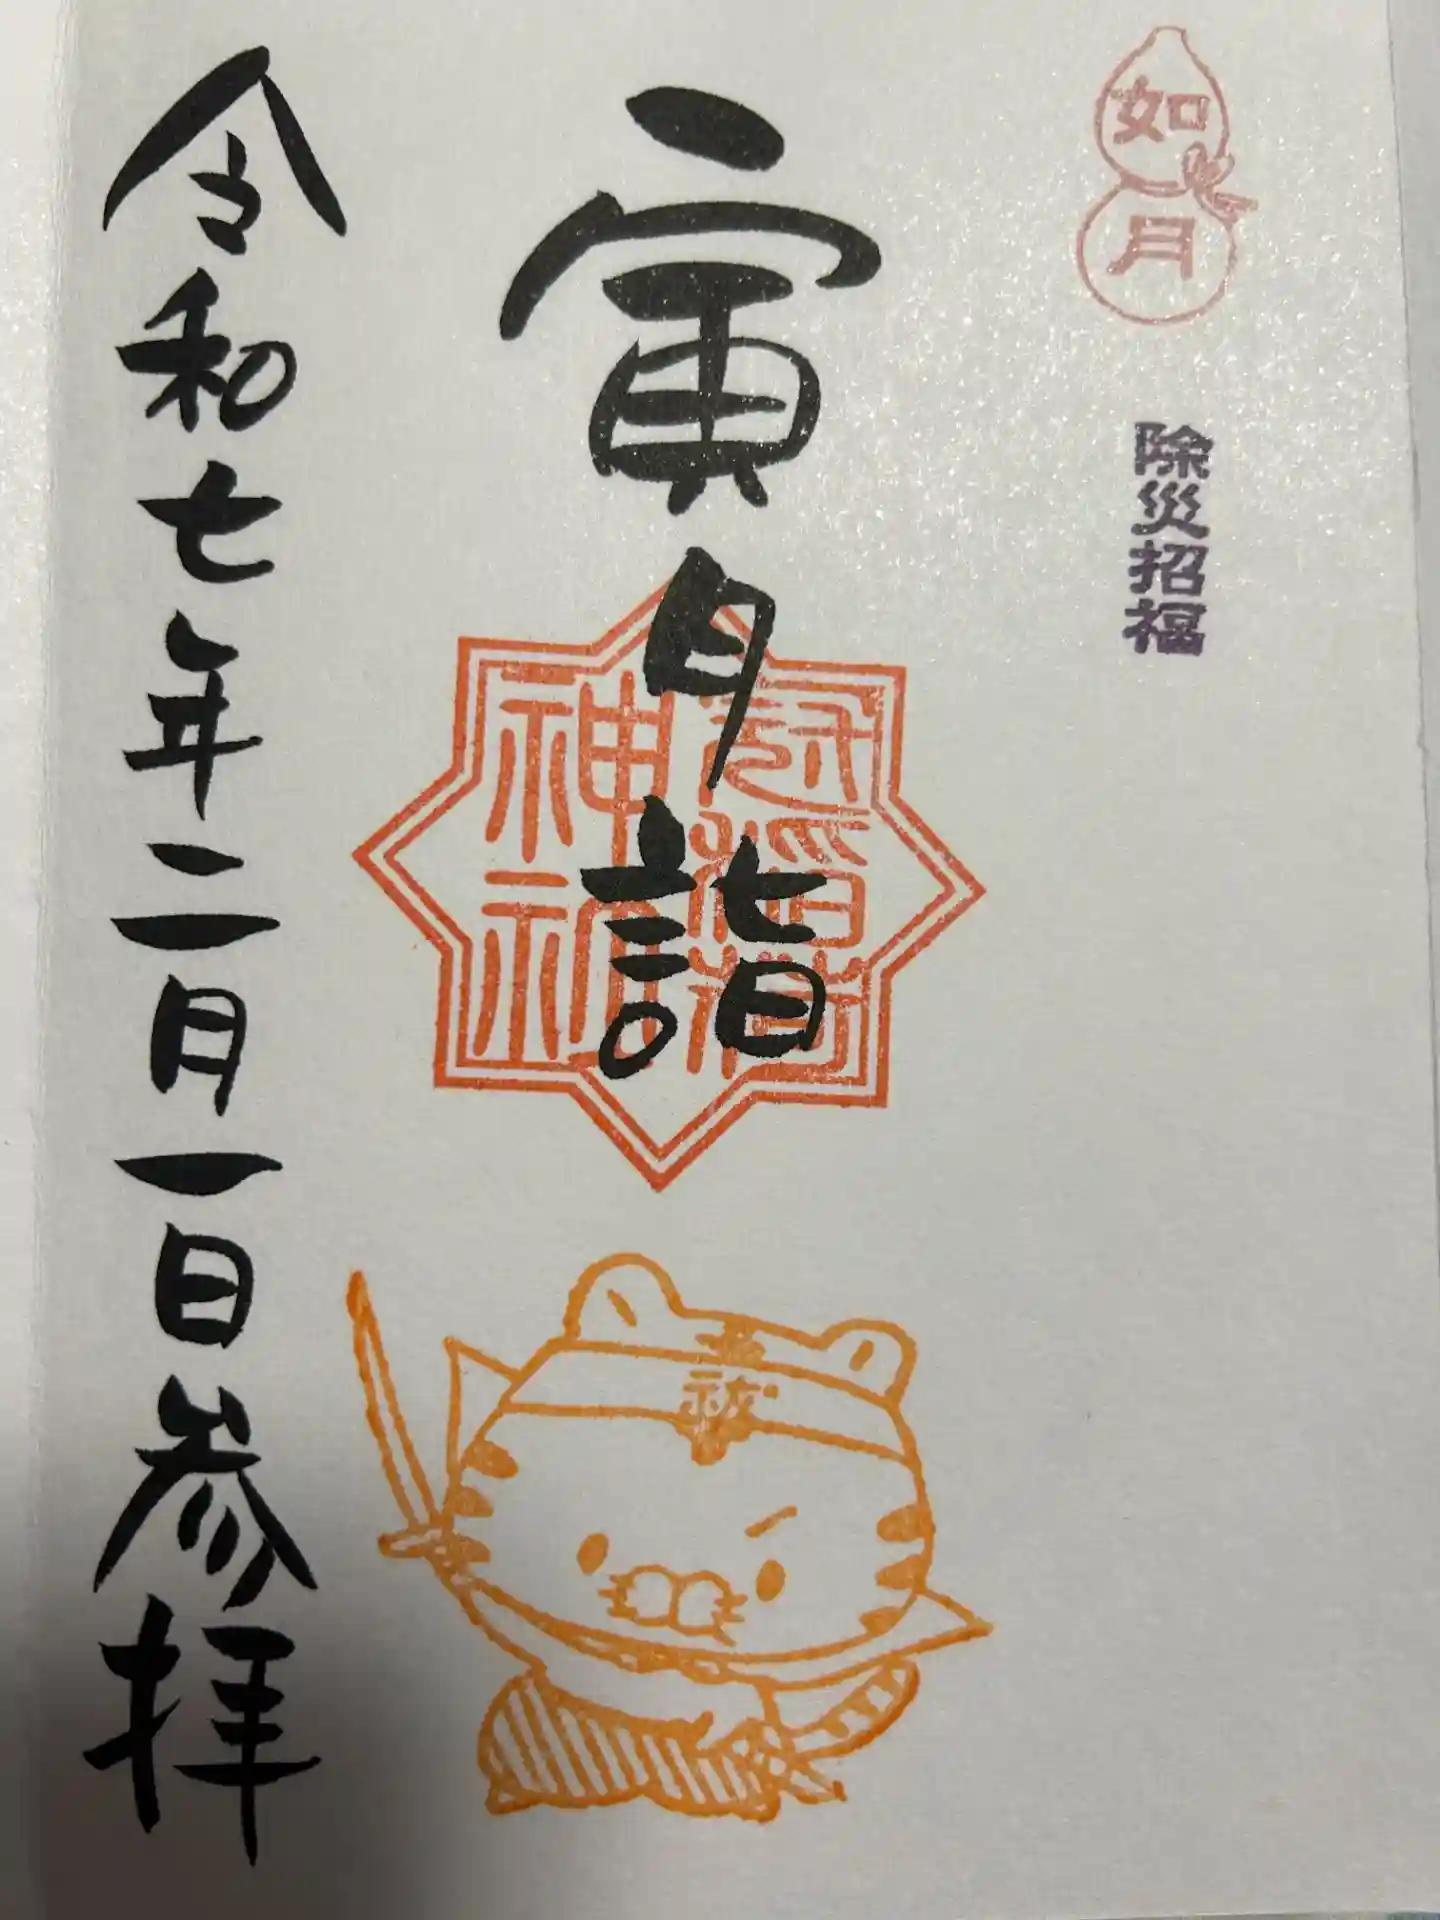 如月
除災招福
寅日詣
冠稲荷
神社
令和七年二月一日参拝